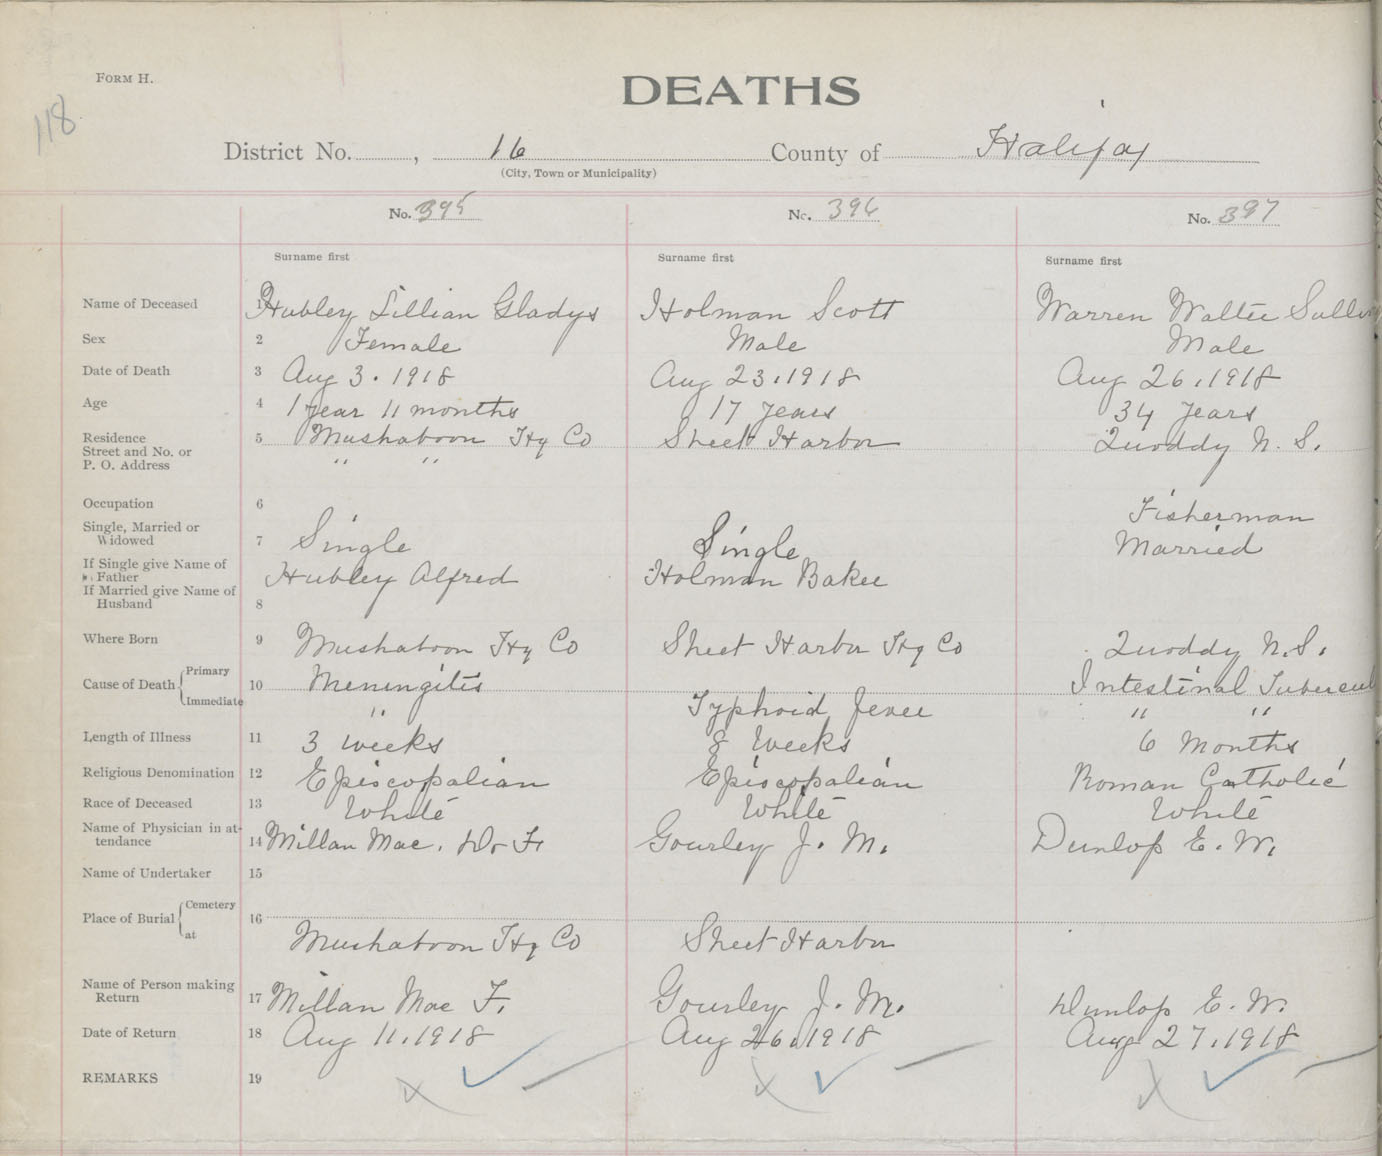 FORM H.
DEATHS
118
District No. , 16 County of Halifax
(City, Town or Municipality)
No. 395 No. 396 No. 397
Surname first Surname first Surname first
Name of Deceased 1 Hubley Lillian Gladys Holman Scott Warren Walter
Sex 2 Female Male Male
Date of Death 3 Aug 3. 1918 Aug 23.1918 Aug 26.1918
Age 4 1 year 11 months 17 years 34 years
Residence 5 Mushaboon Hx Co Sheet Harbor Quoddy N. S.
Street and No. or
P. O. Address " "
Occupation 6 Fisherman
Single, Married or
Widowed 7 Single Single Married
If Single give Name of
Father Hubley Alfred Holman Baker
If Married give Name of
Husband 8
Where Born 9 Mushaboon Hx Co Sheet Harbor Hx Co Quoddy N.S.
Cause of Death Primary 10 Meningitis Intestinal
Immediate " Typhoid Fever " "
Length of Illness 11 3 weeks 8 Weeks 6 Months
Religious Denomination 12 Episcopalian Episcopalian Roman Catholic
Race of Deceased 13 White White White
Name of Physician in at-
tendance 14 Millan Mac. Dr F. Gourley J. M. Dunlop E. W.
Name of Undertaker 15
Place of Burial Cemetery 16
at Mushaboon Hx Co Sheet Harbor
Name of Person making
Return 17 Millan Mac F. Gourley J. M. Dunlop E. W.
Date of Return 18 Aug 11.1918 Aug 26.1918 Aug 27.1918
REMARKS 19